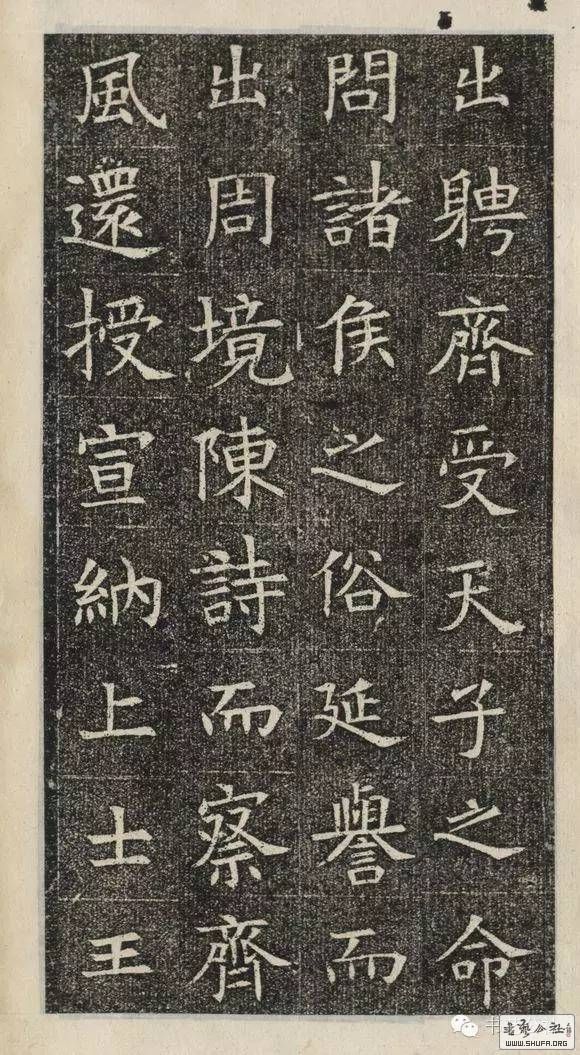 出聘齊受天子之命
問諸侯之俗延譽而
出周境陳詩而察齊
風還授宣納上士王
WWW.SHUFA.ORG